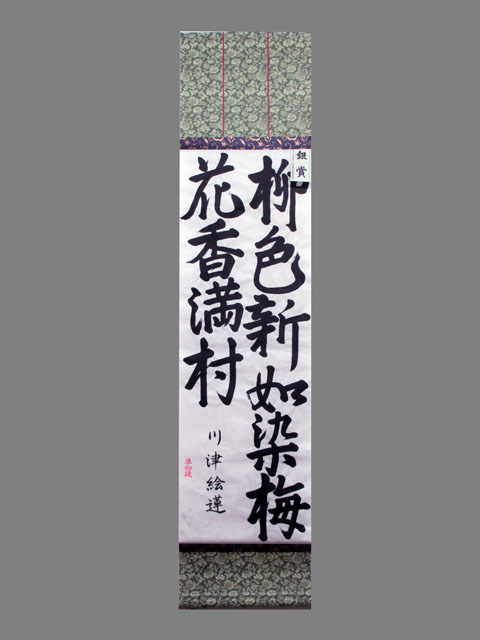 銀賞
柳色新如染梅
花香満村
川津絵蓮
準初段